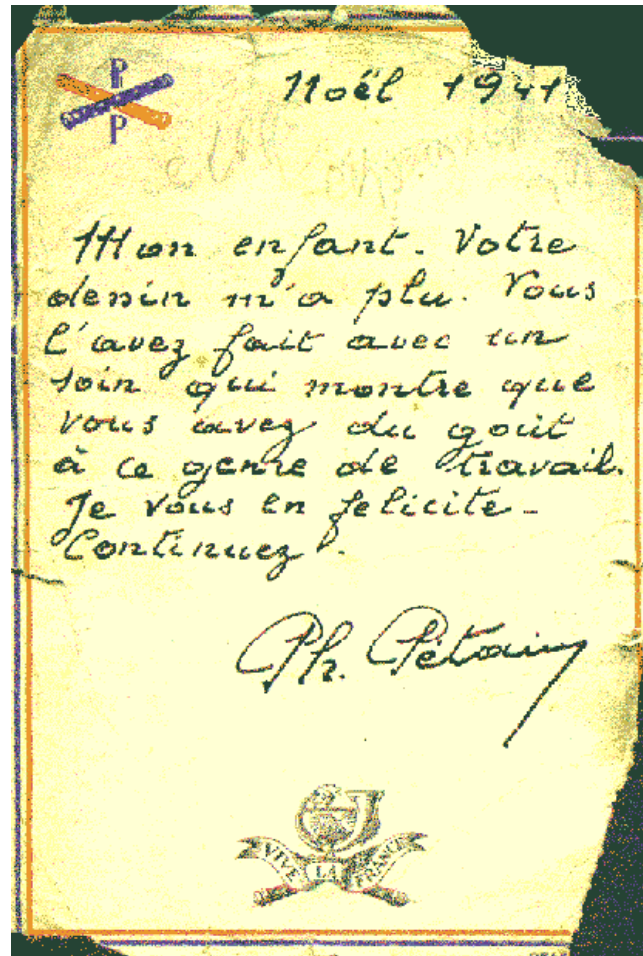 P
P
Noël 1941
Mon enfant. Votre
dessin m'a plu. Vous
l'avez fait avec un
soin qui montre que
vous avez du goût
à ce genre de travail.
Je vous en felicite -
Continuez.
Ph. Pétain
VIVE LA FRANCE